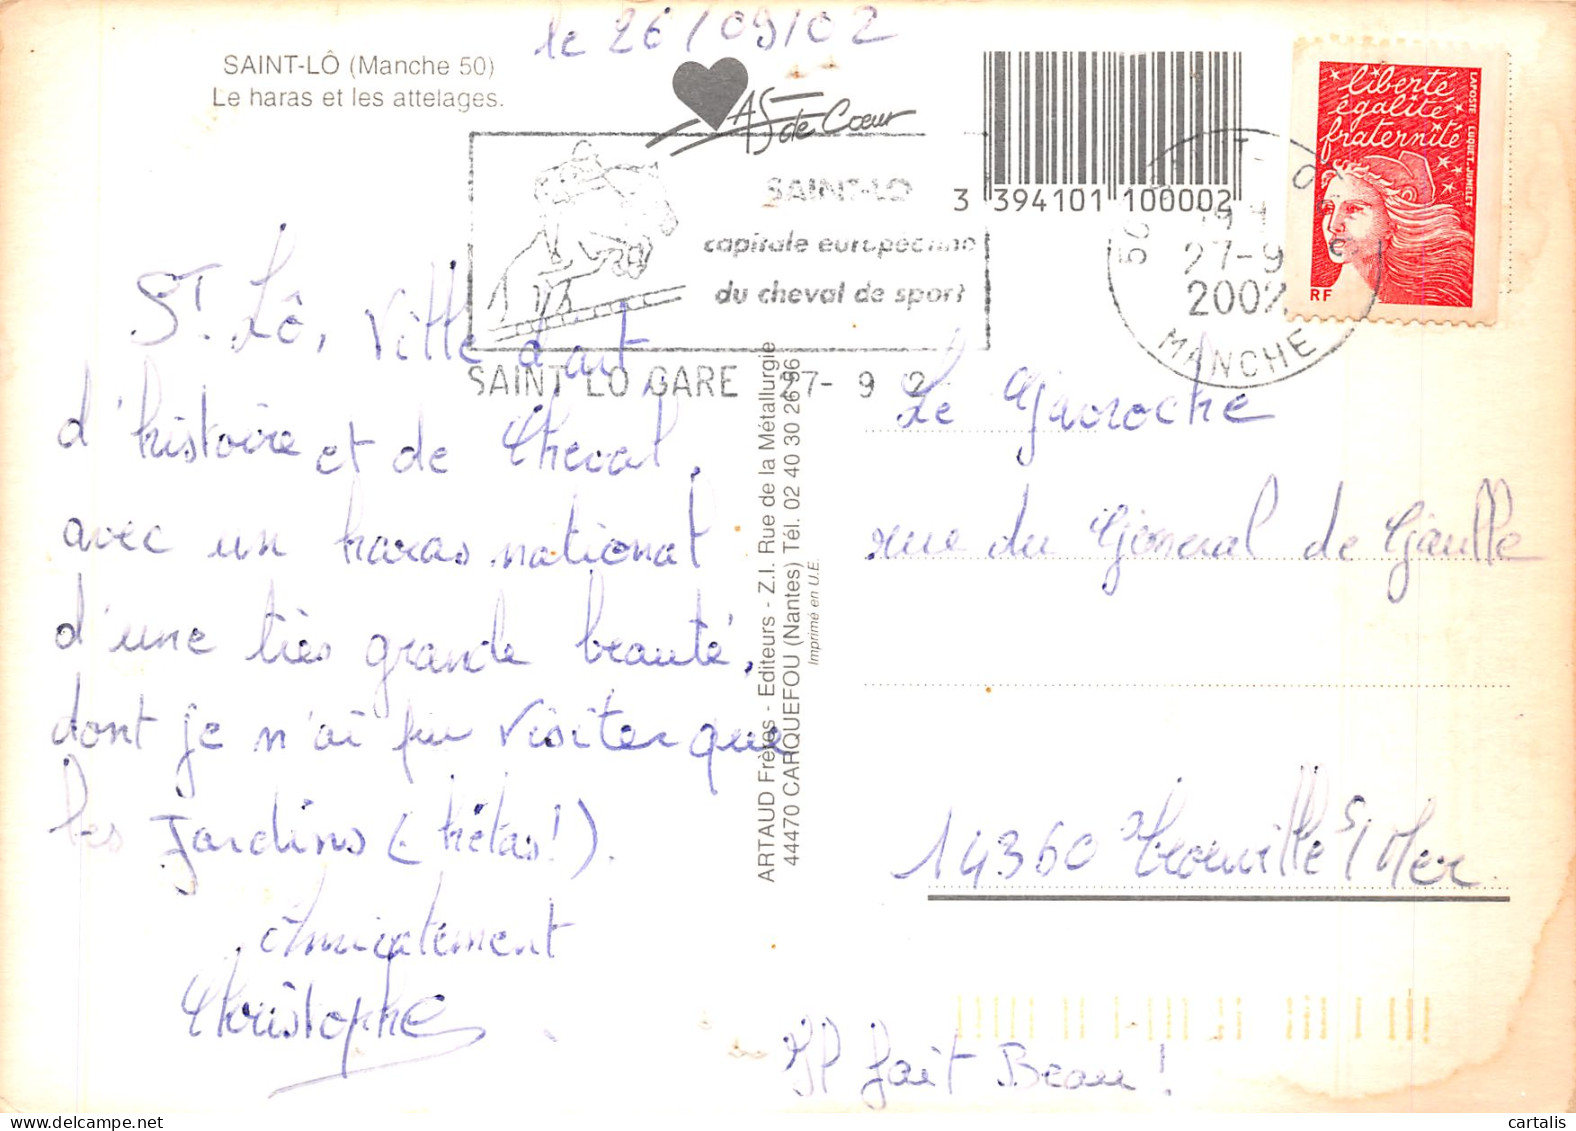 le 26/09/02
SAINT-LÔ (Manche 50)
Le haras et les attelages.
AS de Cœur
SAINT-LO
capitale européenne
du cheval de sport
SAINT LO GARE 27- 9 2
3 394101 100002
27-9
2002
MANCHE
liberté
égalité
fraternité
LA POSTE LUQUET - JUMELET
RF
St Lô, ville d'art,
d'histoire et de Cheval,
avec un haras national
d'une très grande beauté,
dont je n'ai pu visiter que
les Jardins (hélas!).
Amicalement
Christophe
ARTAUD Frères - Editeurs - Z.I. Rue de la Métallurgie
44470 CARQUEFOU (Nantes) Tél. 02 40 30 26 96
Imprimé en U.E.
Le Gavroche
rue du Général de Gaulle
14360 Trouville S/Mer
Il fait Beau !
cartalis